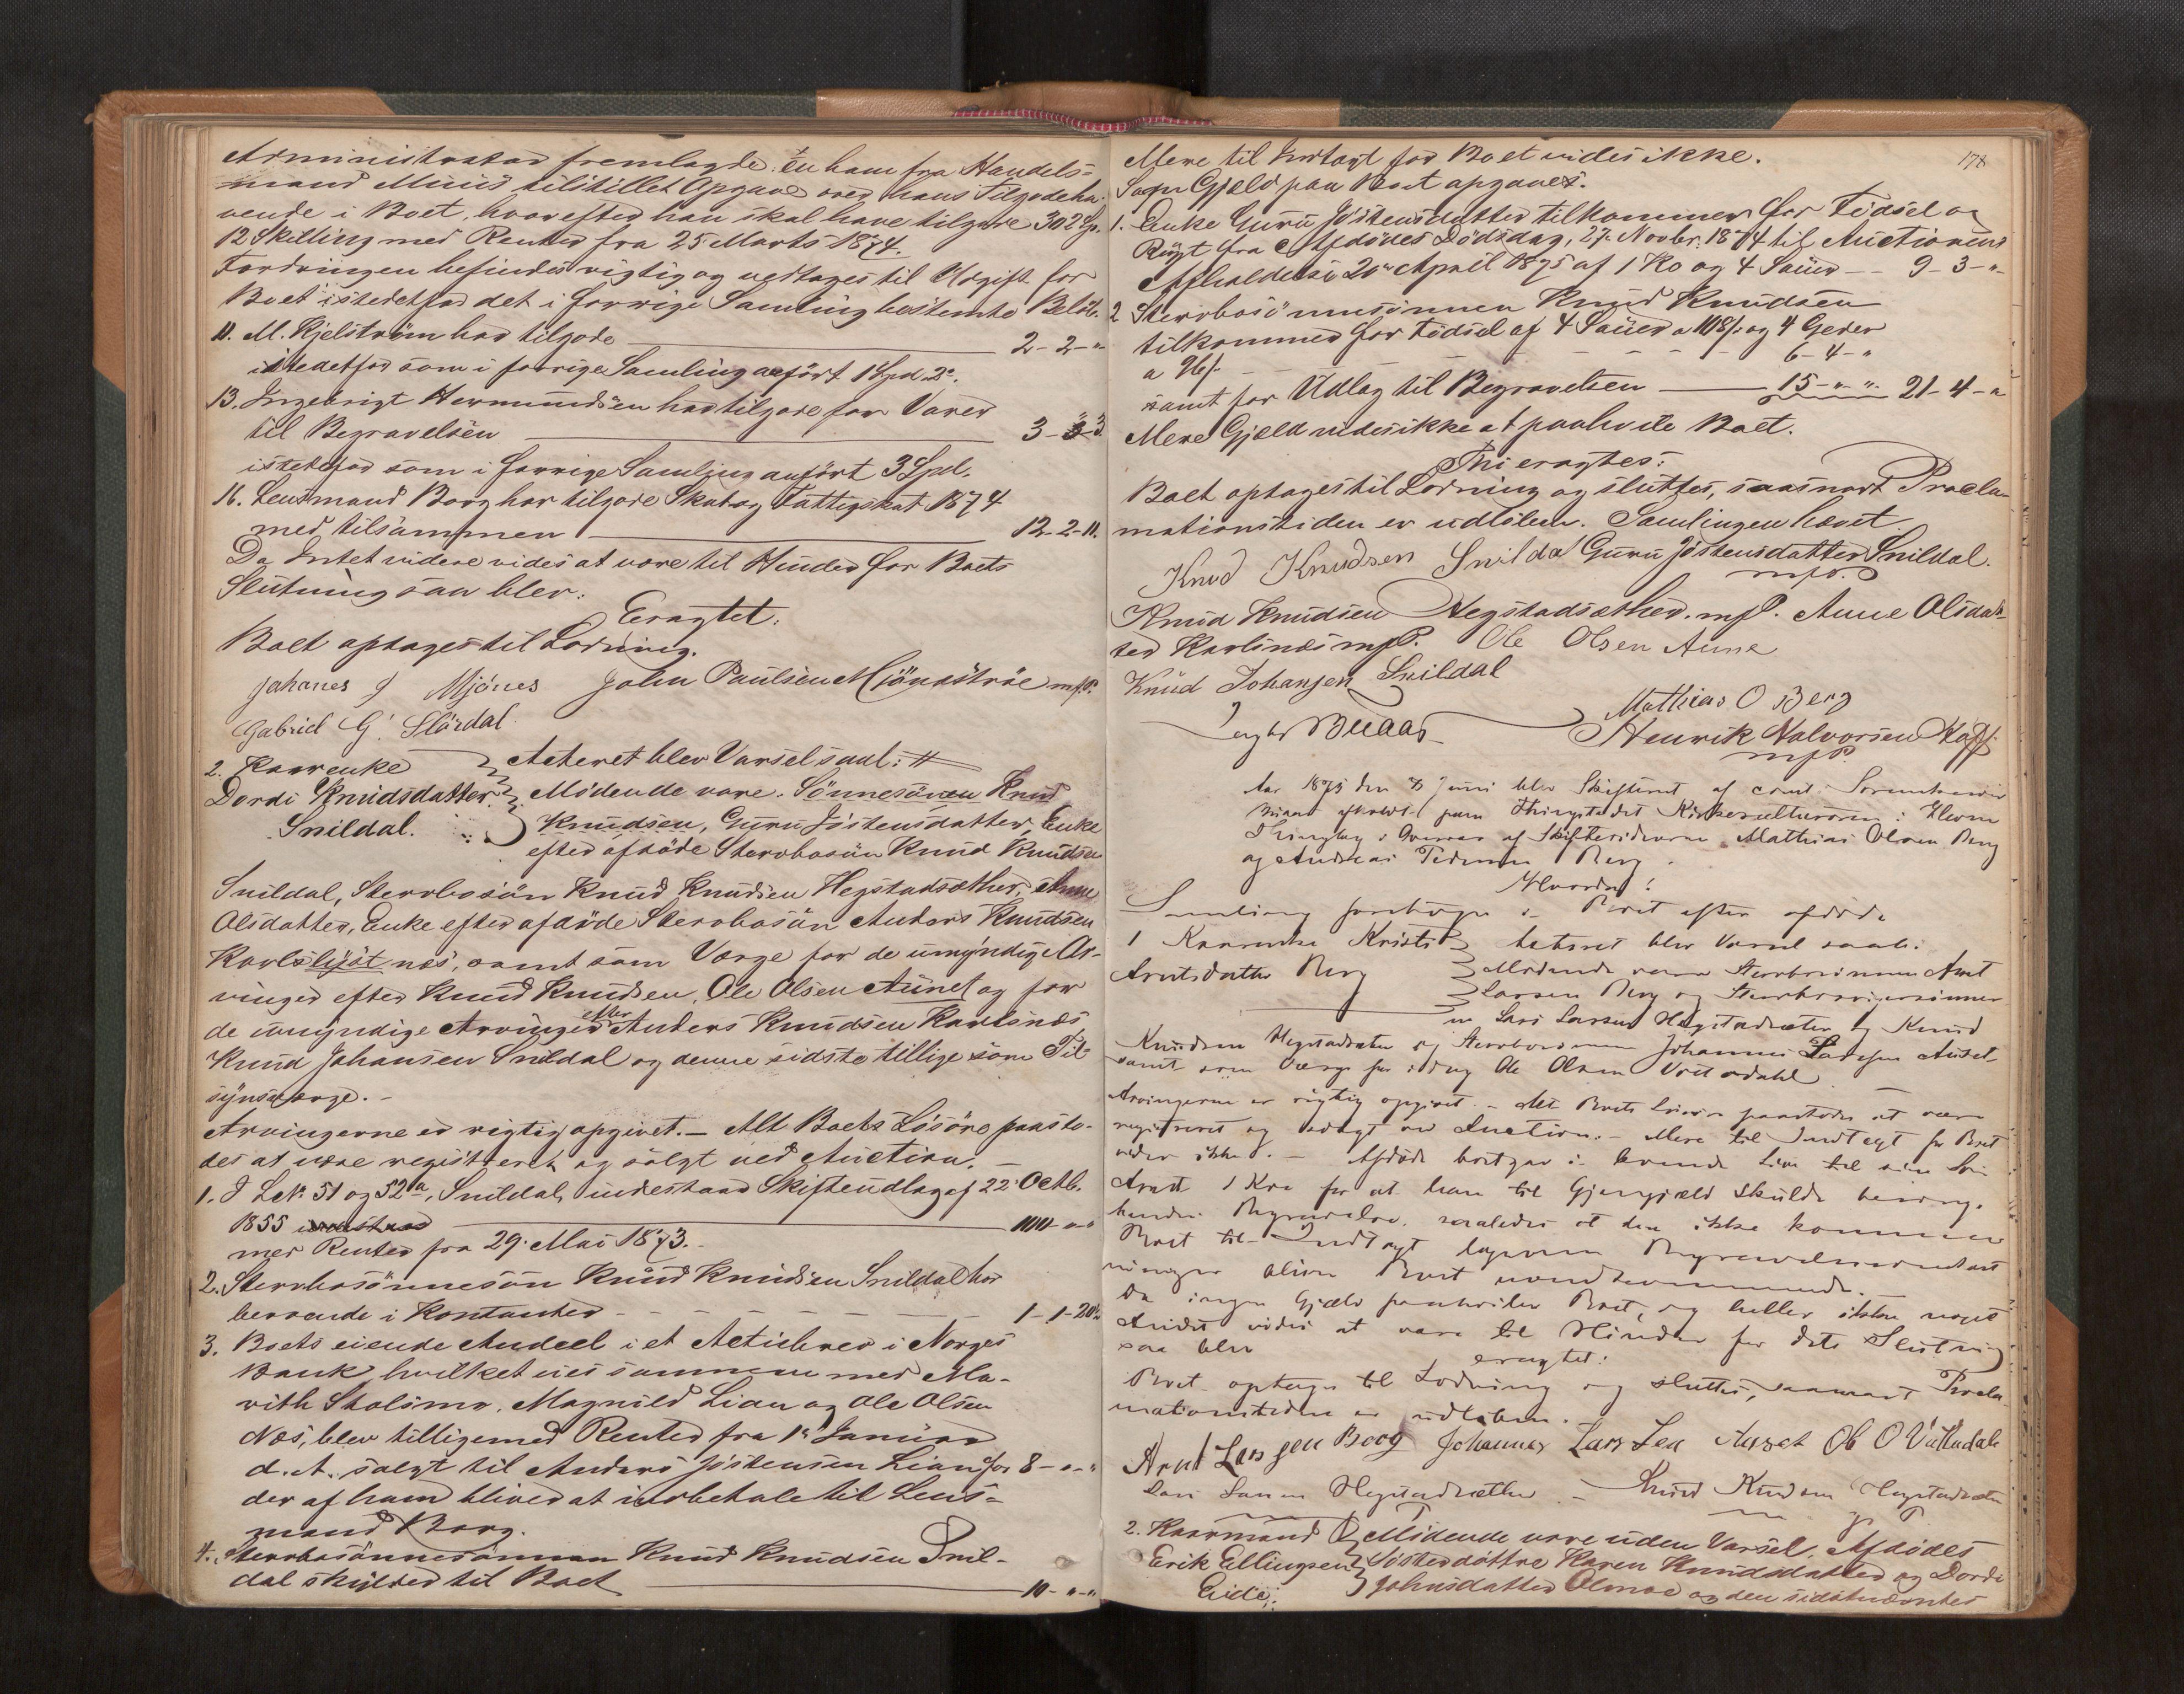 Administrator fremlagde en ham fra Handels-
mand Muus tilstillet Opgave over hans Tilgodeha-
vende i Boet, hvorefter han skal have tilgode 302 Sp.
12 Skilling med Renter fra 25 Marts 1874.
Fordringen befindes rigtig og vedtages til Udgift for
Boet istedetfor det i forrige Samling bestemte Beløb.
11. M. Kjelström har tilgode 2-2-"
istedetfor som i forrige Samling anført 1 Spd. 2
13. Ingebrigt Hermundsen har tilgode for Varer
til Begravelsen 3-3-3.
istedetfor som i forrige Samling anført 3 Spd.
16. Lensmand Borg har tilgode Skat og Fattigskat 1874
med tilsammen 12-2-11.
Da Intet videre vides at være til Hinder for Boets
Slutning saa blev:
Eragtet:
Boet optages til Lodning.
Johanes J Mjönes John Paulsen Mjöneströe m.f.P.
Gabriel G. Slördal
2. Kaarenke Citeret blev Varselsaul: #
Dordi Knudsdatter Mødende vare: Sønnesønen Knud
Snildal. Knudsen, Guru Jöstensdatter, Enke
efter afdøde Stervbosøn Knud Knudsen
Snildal, Stervbosøn Knud Knudsen Hegstadsæther, Anne
Olsdatter, Enke efter afdøde Stervbosøn Anders Knudsen
Karlslyst næs, samt som Værge for de umyndige Ar-
vinger efter Knud Knudsen, Ole Olsen Aunet og for
de umyndige Arvinger efter Anders Knudsen Karlsnæs
Knud Johansen Snildal og denne sidste tillige som Til-
synsværge.-
Arvingerne er rigtig opgivet.- Alt Boets Løsøre paasto-
des at være registreret og solgt ved Auction.-
1. I L. No. 51 og 52a, Snildal, indestaar Skifteudlæg af 22 Octb.
1855 100-"-"
med Renter fra 29. Mai 1873.
2. Stervbosønnesøn Knud Knudsen Snildal har
beroende i Kontanter 1-1-20
3. Boets eiende Andeel i et Actiebrev i Norges
Bank, hvilket eies sammen med Ma-
rith Stolsmo, Magnild Lian og Ole Olsen
Næs, blev tilligemed Renter fra 1ste Januar
d. A. solgt til Anders Jöstensen Lian for 8-"-"
der af ham bliver at indbetale til Lens-
mand Borg.
4. Stervbosønnesønnen Knud Knudsen Snil-
dal skylder til Boet 10-"-"
178
Mere til Indtægt for Boet vides ikke.
Som Gjæld paa Boet opgaves:
1. Enke Guru Jöstensdatter tilkommer for Fødsel og
Røgt fra Afdødes Dødsdag, 27. Novbr. 1874 til Auctionens
Afholdelse 20de April 1875 af 1 Ko og 4 Sauer 9-3-"
2 Stervbosønnesønnen Knud Knudsen
tilkommer for Fødsel af 4 Sauer a 108 s. og 4 Geder
a 96 s. 6-4-"
samt for Udlæg til Begravelsen 15-"-" 21-4-"
Mere Gjæld vides ikke at paahvile Boet.
Thi eragtes:
Boet optages til Lodning og sluttes, saasnart Procla-
mationstiden er udløben. Samlingen hævet.
Knud Knudsen Snildal Guru Jöstensdatter Snildal.
m.f.P.
Knud Knudsen Hegstadsæther. m.f.P. Anne Olsdat-
ter Karlsnæs m.f.P. Ole Olsen Aune
Knud Johansen Snildal
Mathias O Berg
Buaas Henrik Halvorsen
m.f.P.
Aar 1875 den 8 Juni blev Skifteret af const. Sorenskriver
Buaas afholdt paa Thingstedet Kirksæterøren i Hevne
Thinglag i Overvær af Skiftevidnerne Mathias Olsen Berg
og Andreas Berg.
Hvorda:
Samling foretoges i Boet efter afdøde
1 Kaarenke Kristi Citeret blev Varsel saal:
Arntsdatter Berg Mødende vare Stervbosønnen Arnt
Larsen Berg og Stervbosvigersønner-
ne Lars Larsen Hegstadsæter og Knud
Knudsen Hegstadsæter og Stervbosønnen Johannes Larsen Aunet
samt som Værge for Ole Olsen
Arvingerne er rigtig opgivet.- Alt Boets Løsøre paastodes at være
registreret og solgt ved Auction.- Mere til Indtægt for Boet
vides ikke.- Afdøde bortgav i levende Live til sin Søn
Arnt 1 Ko for at han til Gjengjæld skulde besørge
hendes Begravelse, saaledes at den ikke kommer
Boet til Indtægt ligesom Begravelsesomkost
ninger blive Boet uvedkommende.-
Da ingen Gjæld paahviler Boet, og heller ikke noget
Andet vides at være til Hinder for dets Slutning
saa blev eragtet:
Boet optages til Lodning og sluttes, saasnart Procla-
mationstiden er udløben.
Arnt Larsen Berg Johannes Larsen Aunet Ole O
Lars Larsen Hegstadsæther - Knud Knudsen Hegstadsæter
2. Kaarmand Mødende vare uden Varsel, Afdødes
Erik Ellingsen Søsterdøttre Karen Knudsdatter og Dordi
Eide: Johnsdatter Olmoe og den sidstnævntes